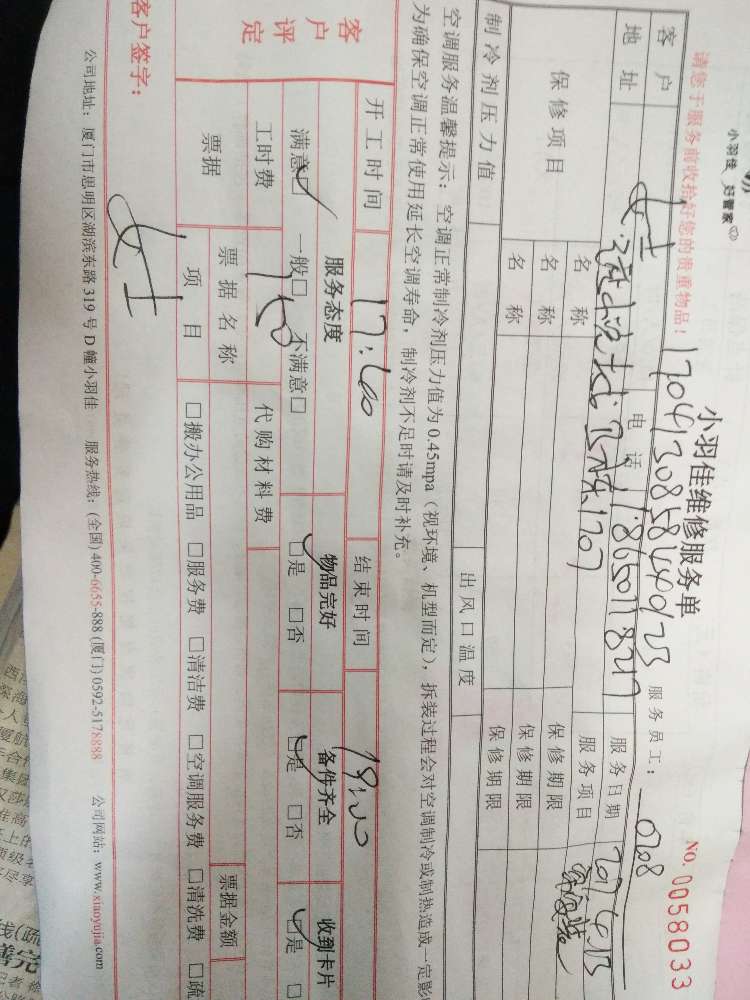 小羽佳 好管家
小羽佳维修服务单
NO. 0058033
请您于服务前收拾好您的贵重物品！
服务员工： 0208
客户 女士 电话 服务日期
地址 服务项目
保修项目 名称 保修期限
名称 保修期限
名称 保修期限
制冷剂压力值 出风口温度
空调服务温馨提示：空调正常制冷剂压力值为0.45mpa（视环境、机型而定），拆装过程会对空调制冷或制热造成一定影
为确保空调正常使用延长空调寿命，制冷剂不足时请及时补充。
开工时间 17:00 结束时间 19:00
客户评定
服务态度 物品完好 备件齐全 收到卡片
满意□ 一般□ 不满意□ □是 □否 □是 □否 □是 □
工时费 150 代购材料费
票据 票据名称 票据金额
项目 □搬办公用品 □服务费 □清洁费 □空调服务费 □清洗费 □疏
客户签字： 女士
公司地址：厦门市思明区湖滨东路319号D幢小羽佳 服务热线：(全国) 400-6655-888 (厦门) 0592-5178888 公司网站：www.xiaoyujia.com